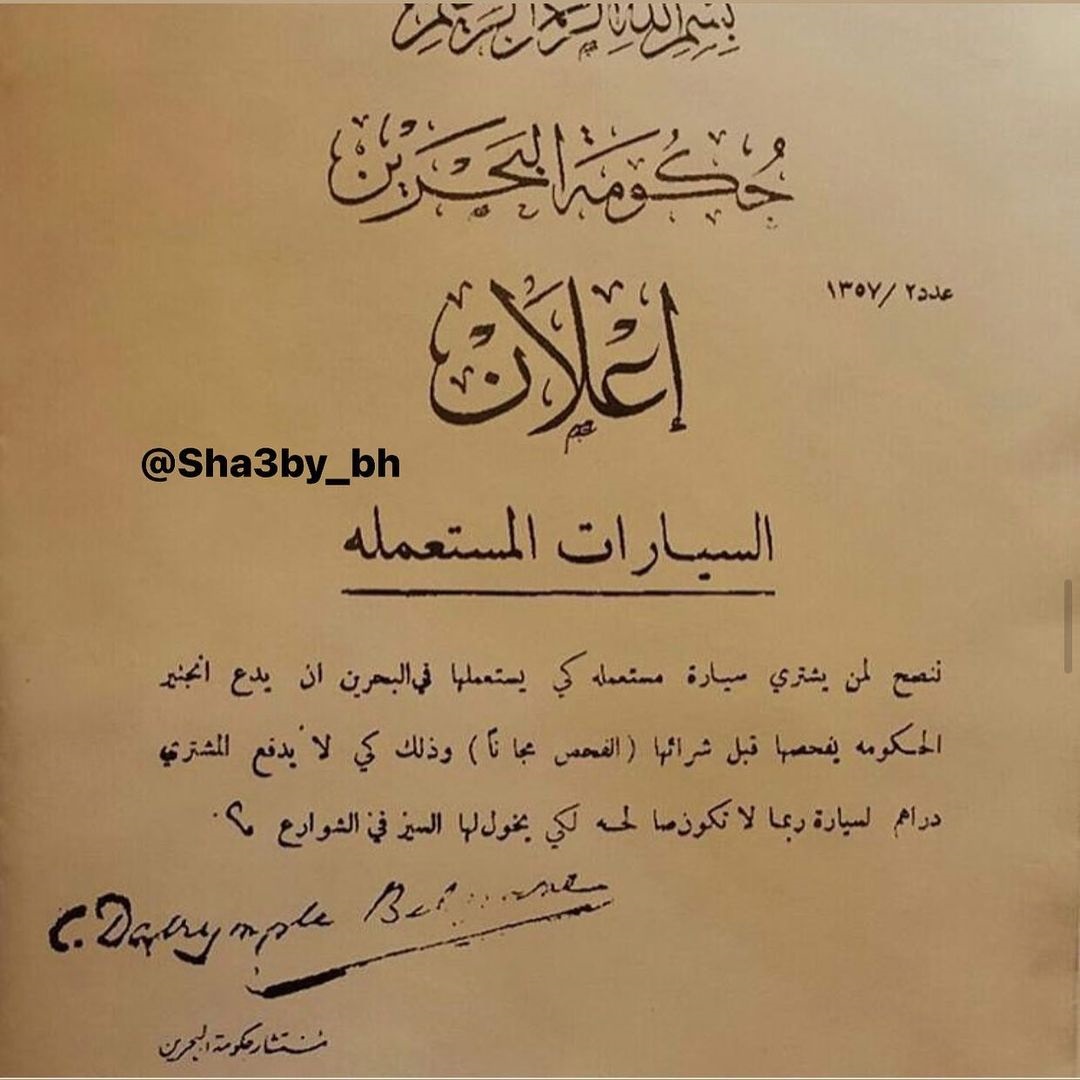 بسم الله الرحمن الرحيم
حكومة البحرين
عدد ٢/ ١٣٥٧
إعلان
@Sha3by_bh
السيارات المستعمله
ننصح لمن يشتري سيارة مستعمله كي يستعملها في البحرين ان يدع انجنير
الحكومه يفحصها قبل شرائها (الفحص مجاناً) وذلك كي لا يدفع المشتري
دراهم لسيارة ربما لا تكون صالحه لكي يخول لها السير في الشوارع
C. Dalrymple Belgrave
مستشار حكومة البحرين